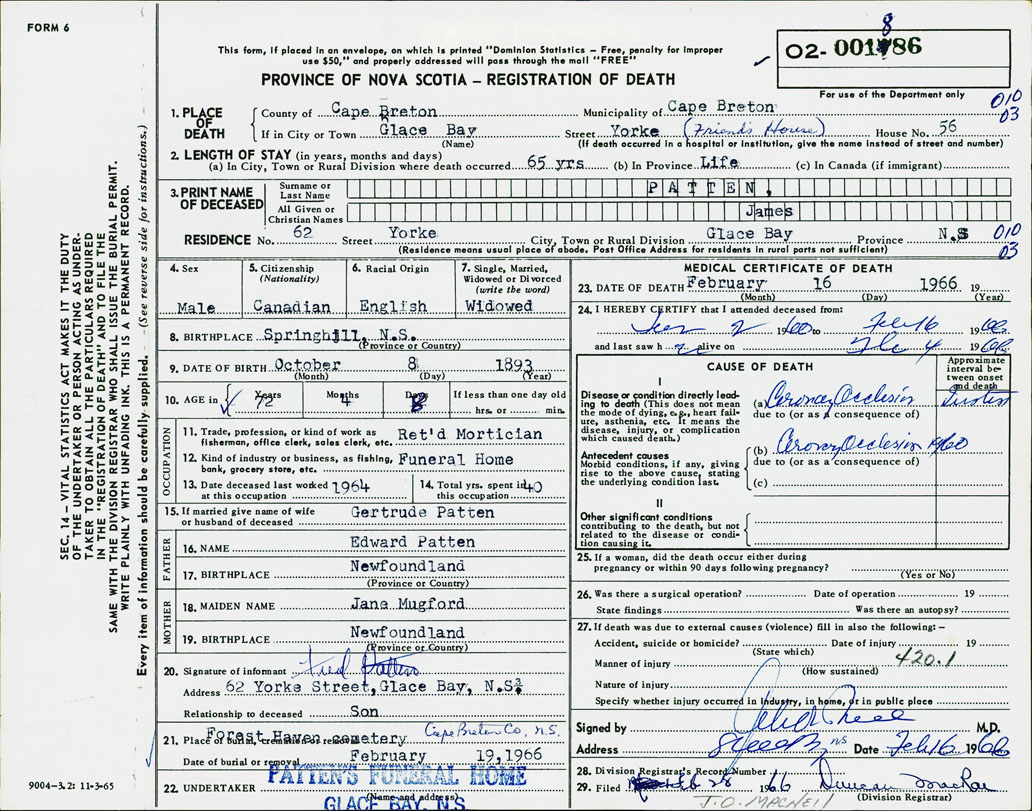 FORM 6
This form, if placed in an envelope, on which is printed "Dominion Statistics – Free, penalty for improper
use $50," and properly addressed will pass through the mail "FREE"
PROVINCE OF NOVA SCOTIA – REGISTRATION OF DEATH
8
02- 001786
For use of the Department only
010
03
1. PLACE OF DEATH
County of Cape Breton Municipality of Cape Breton
If in City or Town Glace Bay Street Yorke (Friend's House) House No. 56
(Name) (If death occurred in a hospital or institution, give the name instead of street and number)
2. LENGTH OF STAY (in years, months and days)
(a) In City, Town or Rural Division where death occurred 65 yrs (b) In Province Life (c) In Canada (if immigrant)
3. PRINT NAME OF DECEASED
Surname or Last Name PATTEN,
All Given or Christian Names James
RESIDENCE No. 62 Street Yorke City, Town or Rural Division Glace Bay Province N.S 010
03
(Residence means usual place of abode. Post Office Address for residents in rural parts not sufficient)
4. Sex
Male
5. Citizenship
(Nationality)
Canadian
6. Racial Origin
English
7. Single, Married,
Widowed or Divorced
(write the word)
Widowed
8. BIRTHPLACE Springhill, N.S.
(Province or Country)
9. DATE OF BIRTH October 8 1893
(Month) (Day) (Year)
10. AGE in Years Months Days If less than one day old
72 4 8 hrs. or min.
OCCUPATION
11. Trade, profession, or kind of work as
fisherman, office clerk, sales clerk, etc. Ret'd Mortician
12. Kind of industry or business, as fishing,
bank, grocery store, etc. Funeral Home
13. Date deceased last worked
at this occupation 1964
14. Total yrs. spent in
this occupation 40
15. If married give name of wife
or husband of deceased Gertrude Patten
FATHER
16. NAME Edward Patten
17. BIRTHPLACE Newfoundland
(Province or Country)
MOTHER
18. MAIDEN NAME Jane Mugford
19. BIRTHPLACE Newfoundland
(Province or Country)
20. Signature of informant Fred Patten
Address 62 Yorke Street, Glace Bay, N.S.
Relationship to deceased Son
21. Place of burial, cremation or removal Forest Haven cemetery Cape Breton Co, N.S.
Date of burial or removal February 19, 1966
22. UNDERTAKER PATTEN'S FUNERAL HOME
(Name and address)
GLACE BAY, N.S.
MEDICAL CERTIFICATE OF DEATH
23. DATE OF DEATH February 16 1966 19
(Month) (Day) (Year)
24. I HEREBY CERTIFY that I attended deceased from:
2 1960 to Feb 16 1966
and last saw h alive on Feb 4 1966
CAUSE OF DEATH
Approximate
interval be-
tween onset
and death
I
Disease or condition directly lead-
ing to death (This does not mean
the mode of dying, e.g., heart fail-
ure, asthenia, etc. It means the
disease, injury, or complication
which caused death.)
(a) Coronary Occlusion
due to (or as a consequence of)
Antecedent causes
Morbid conditions, if any, giving
rise to the above cause, stating
the underlying condition last.
(b) Coronary Occlusion 1960
due to (or as a consequence of)
(c)
II
Other significant conditions
contributing to the death, but not
related to the disease or condi-
tion causing it.
25. If a woman, did the death occur either during
pregnancy or within 90 days following pregnancy?
(Yes or No)
26. Was there a surgical operation? Date of operation 19
State findings Was there an autopsy?
27. If death was due to external causes (violence) fill in also the following: –
Accident, suicide or homicide? Date of injury 19
(State which)
Manner of injury 420.1
(How sustained)
Nature of injury
Specify whether injury occurred in industry, in home, or in public place
Signed by M.D.
Address NS Date Feb 16 1966
28. Division Registrar's Record Number
29. Filed Feb 28 1966 Duncan MacRae
(Division Registrar)
J.O. MACNEIL
SEC. 14 – VITAL STATISTICS ACT MAKES IT THE DUTY
OF THE UNDERTAKER OR PERSON ACTING AS UNDER-
TAKER TO OBTAIN ALL THE PARTICULARS REQUIRED
IN THE "REGISTRATION OF DEATH" AND TO FILE THE
SAME WITH THE DIVISION REGISTRAR WHO SHALL ISSUE THE BURIAL PERMIT.
WRITE PLAINLY WITH UNFADING INK. THIS IS A PERMANENT RECORD.
Every item of information should be carefully supplied. – (See reverse side for instructions.)
9004-3.2: 11-3-65